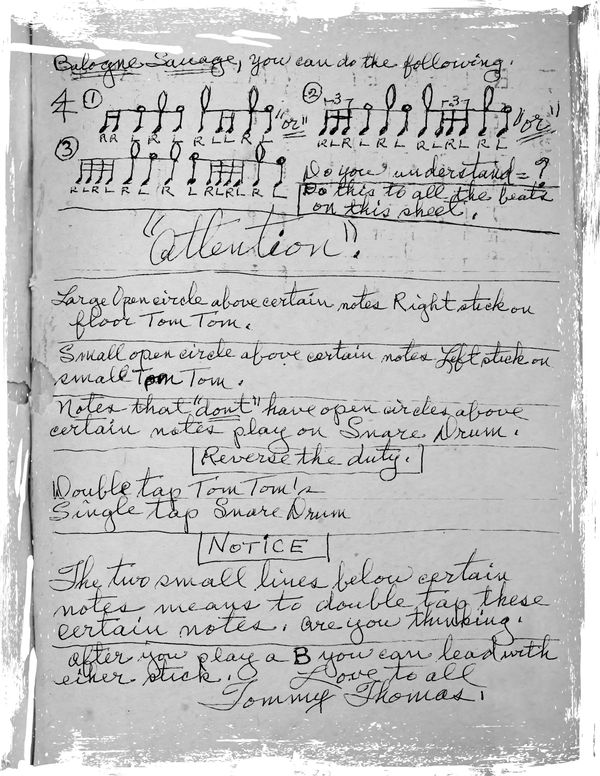 Balogne Sausage, you can do the following.
4 ① ② 3 3
RR L R L R LL R L "or" RLR L R L R LRL R L "or"
③
RLRL R L R LRLR L R L
Do you understand = ?
Do this to all the beats
on this sheet.
"Attention".
Large Open circle above certain notes Right stick on
floor Tom Tom.
Small open circle above certain notes Left stick on
small Tom Tom.
Notes that "dont" have open circles above
certain notes play on Snare Drum.
Reverse the duty.
Double tap Tom Tom's
Single tap Snare Drum
NOTICE
The two small lines below certain
notes means to double tap these
certain notes. are you thinking.
after you play a B you can lead with
eiher stick. Love to all
Tommy Thomas.